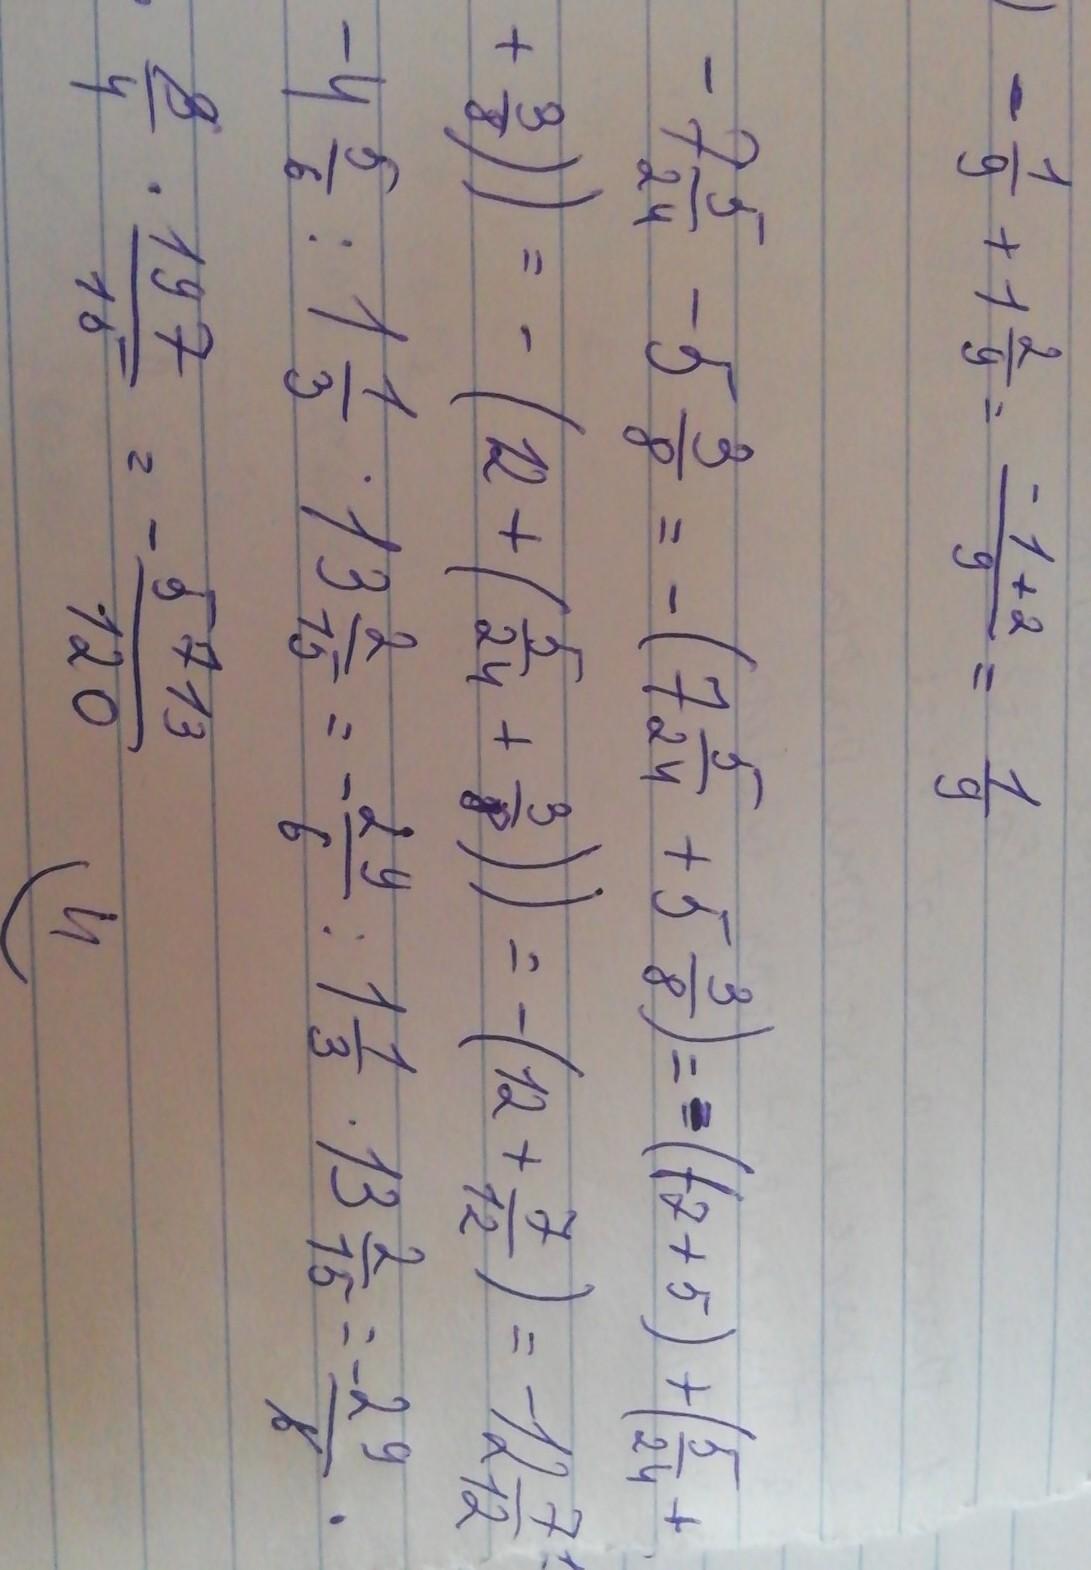 ) - 1/9 + 1 2/9 = (-1+2)/9 = 1/9
- 7 5/24 - 5 3/8 = - (7 5/24 + 5 3/8) = - ((7 + 5) + (5/24 +
+ 3/8)) = - (12 + (5/24 + 3/8))) = - (12 + 7/12) = - 12 7/12
- 4 5/6 : 1 1/3 · 13 2/15 = - 29/6 : 1 1/3 · 13 2/15 = - 29/6 ·
· 3/4 · 197/15 = - 5713/120